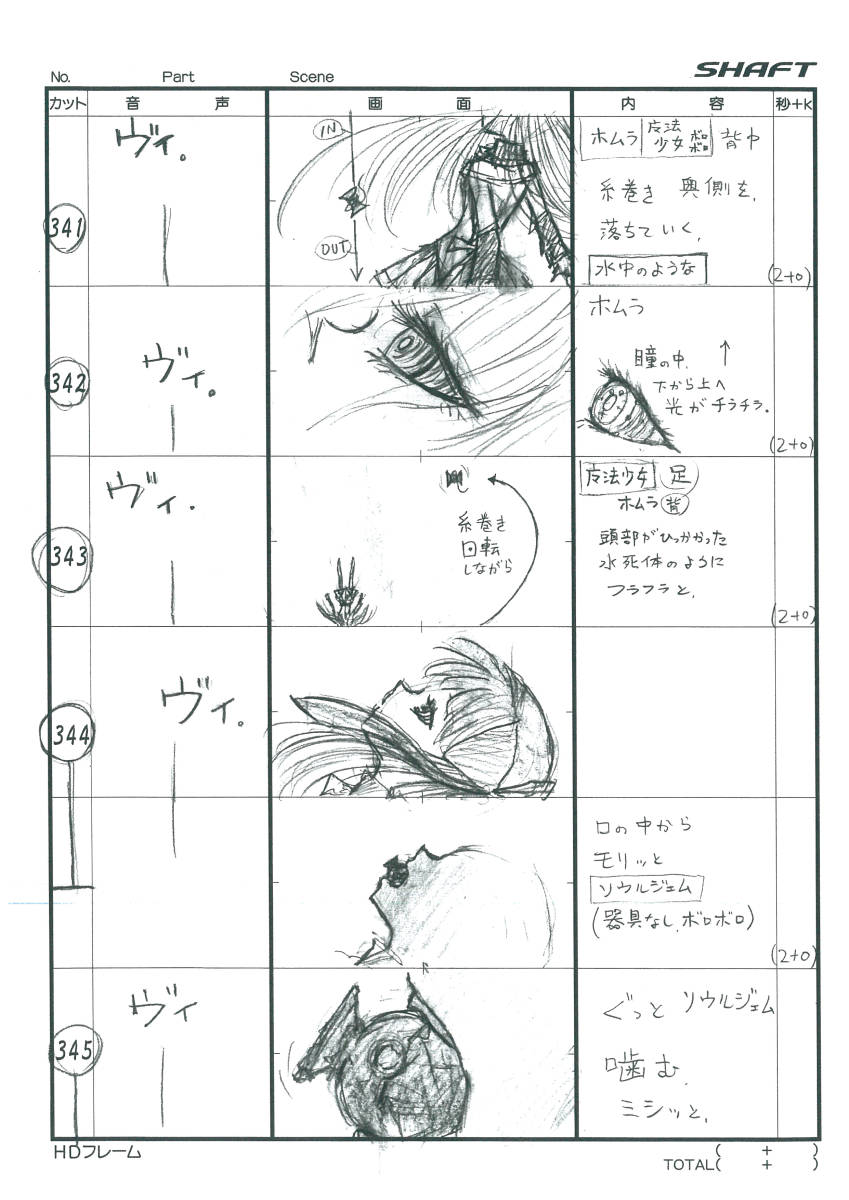 No. Part Scene SHAFT
カット 音声 画面 内容 秒+K
341
ヴィ。
IN
OUT
ホムラ 魔法少女 ボロボロ 背中
糸巻き 奥側を、
落ちていく、
水中のような
(2+0)
342
ヴィ。
ホムラ
瞳の中、↑
下から上へ
光がチラチラ.
(2+0)
343
ヴィ.
糸巻き
回転
しながら
魔法少女 足
ホムラ 背
頭部がひっかかった
水死体のように
フラフラと、
(2+0)
344
ヴィ。
口の中から
モリッと
ソウルジェム
(器具なし、ボロボロ)
(2+0)
345
ヴィ
ぐっと ソウルジェム
噛む、
ミシッと、
HDフレーム
( + )
TOTAL( + )